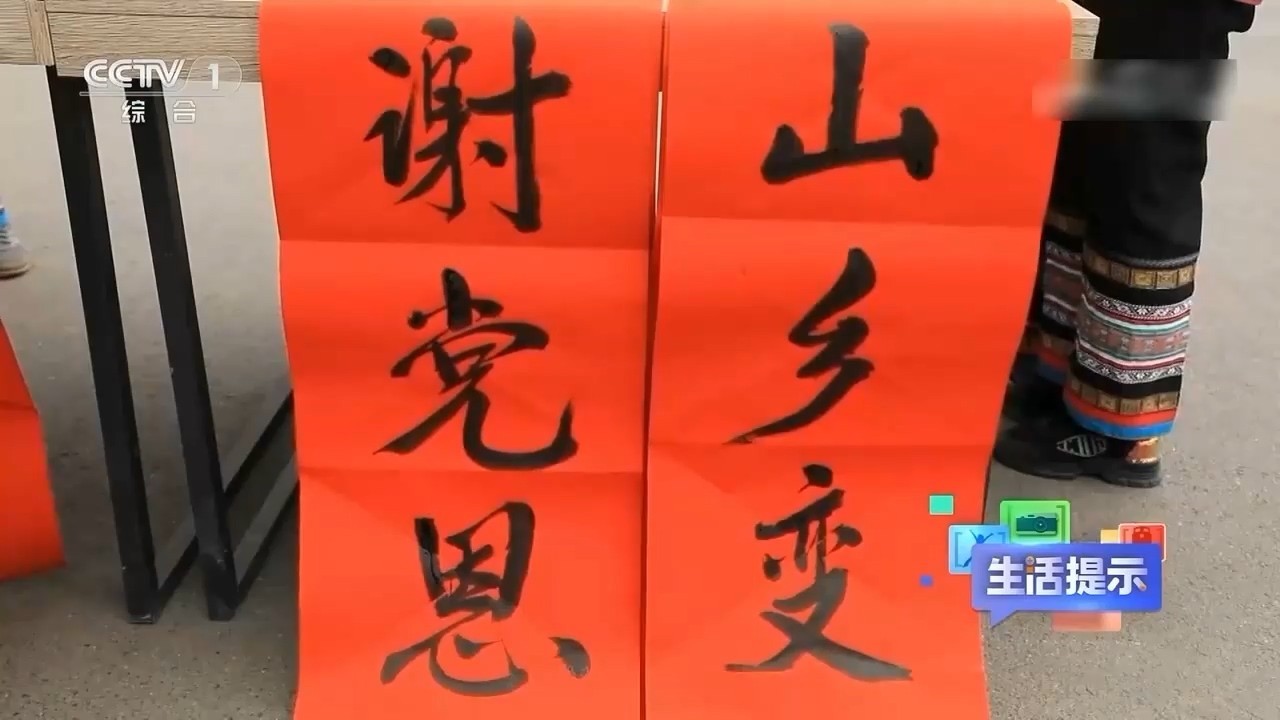 CCTV 1
综合
山乡变
谢党恩
生活提示